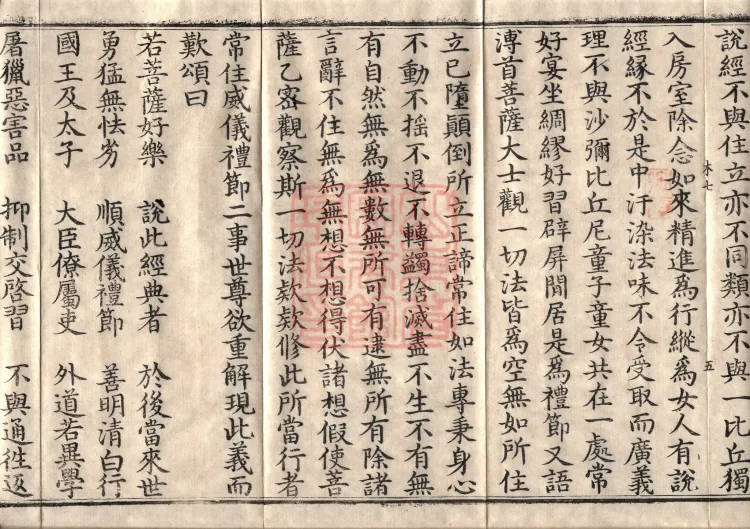 說經不與住立亦不同類亦不與一比丘獨
入房室除念如來精進為行縱為女人有說
經緣不於是中汙染法味不令受取而廣義
理不與沙彌比丘尼童子童女共在一處常
好宴坐綢繆好習辟屏閒居是為禮節又語
溥首菩薩大士觀一切法皆為空無如所住
立已墮顛倒所立正諦常住如法專秉身心
不動不搖不退不轉蠲捨滅盡不生不有無
有自然無為無數無所可有逮無所有除諸
言辭不住無為無想不想得伏諸想假使菩
薩乙密觀察斯一切法欵欵修此所當行者
常住威儀禮節二事世尊欲重解現此義而
歎頌曰
若菩薩好樂 說此經典者 於後當來世
勇猛無怯劣 順威儀禮節 善明清白行
國王及太子 大臣僚屬吏 外道若異學
屠獵惡害品 抑制交啓習 不與通徃返
五